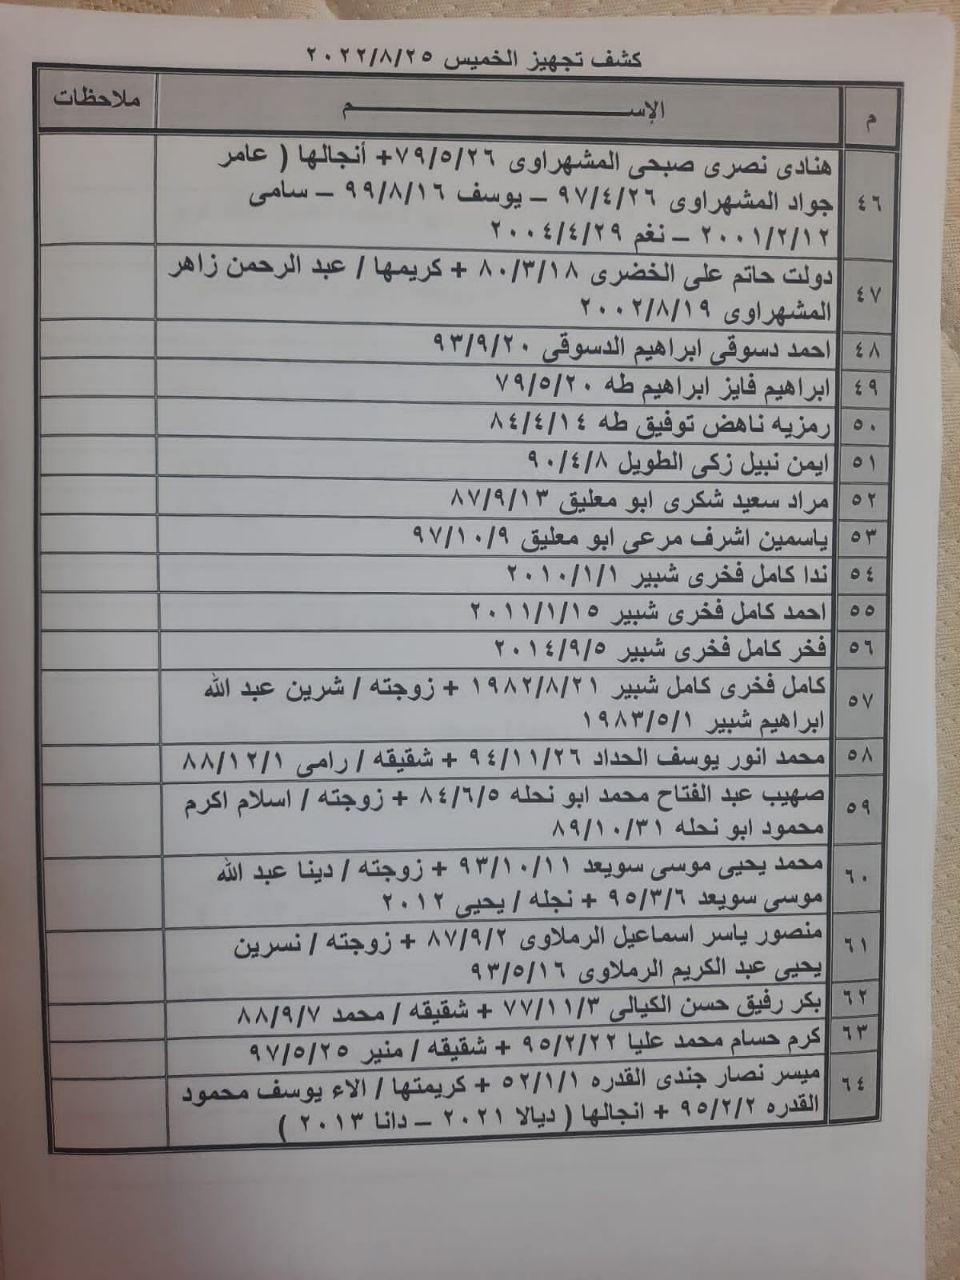 كشف تجهيز الخميس ٢٠٢٢/٨/٢٥
م الإســـم ملاحظات
٤٦ هنادى نصرى صبحى المشهراوى ٧٩/٥/٢٦+ أنجالها ( عامر
جواد المشهراوى ٩٧/٤/٢٦ – يوسف ٩٩/٨/١٦ – سامى
٢٠٠١/٢/١٢ – نغم ٢٠٠٤/٤/٢٩
٤٧ دولت حاتم على الخضرى ٨٠/٣/١٨ + كريمها / عبد الرحمن زاهر
المشهراوى ٢٠٠٢/٨/١٩
٤٨ احمد دسوقى ابراهيم الدسوقى ٩٣/٩/٢٠
٤٩ ابراهيم فايز ابراهيم طه ٧٩/٥/٢٠
٥٠ رمزيه ناهض توفيق طه ٨٤/٤/١٤
٥١ ايمن نبيل زكى الطويل ٩٠/٤/٨
٥٢ مراد سعيد شكرى ابو معليق ٨٧/٩/١٣
٥٣ ياسمين اشرف مرعى ابو معليق ٩٧/١٠/٩
٥٤ ندا كامل فخرى شبير ٢٠١٠/١/١
٥٥ احمد كامل فخرى شبير ٢٠١١/١/١٥
٥٦ فخر كامل فخرى شبير ٢٠١٤/٩/٥
٥٧ كامل فخرى كامل شبير ١٩٨٢/٨/٢١ + زوجته / شرين عبد الله
ابراهيم شبير ١٩٨٣/٥/١
٥٨ محمد انور يوسف الحداد ٩٤/١١/٢٦ + شقيقه / رامى ٨٨/١٢/١
٥٩ صهيب عبد الفتاح محمد ابو نحله ٨٤/٦/٥ + زوجته / اسلام اكرم
محمود ابو نحله ٨٩/١٠/٣١
٦٠ محمد يحيى موسى سويعد ٩٣/١٠/١١ + زوجته / دينا عبد الله
موسى سويعد ٩٥/٣/٦ + نجله / يحيى ٢٠١٢
٦١ منصور ياسر اسماعيل الرملاوى ٨٧/٩/٢ + زوجته / نسرين
يحيى عبد الكريم الرملاوى ٩٣/٥/١٦
٦٢ بكر رفيق حسن الكيالى ٧٧/١١/٣ + شقيقه / محمد ٨٨/٩/٧
٦٣ كرم حسام محمد عليا ٩٥/٢/٢٢ + شقيقه / منير ٩٧/٥/٢٥
٦٤ ميسر نصار جندى القدره ٥٢/١/١ + كريمتها / الاء يوسف محمود
القدره ٩٥/٢/٢ + انجالها ( ديالا ٢٠٢١ – دانا ٢٠١٣ )